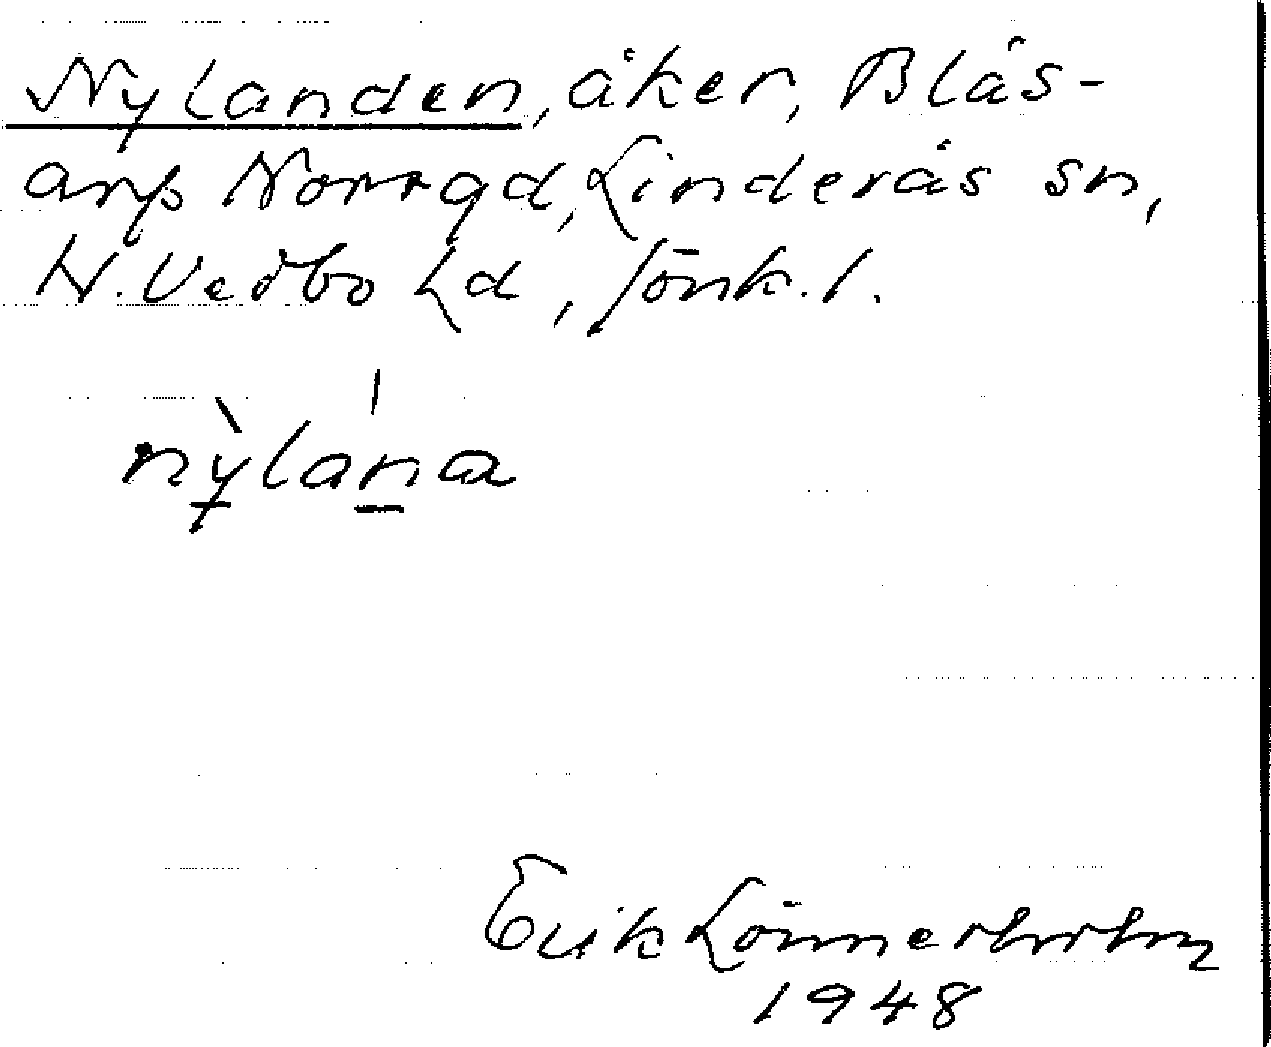 Nylanden, åker, Blås-
arps Norrgd, Linderås sn,
N. Vedbo hd, Jönk. l.
nỳlána
Erik Lönnerholm
1948